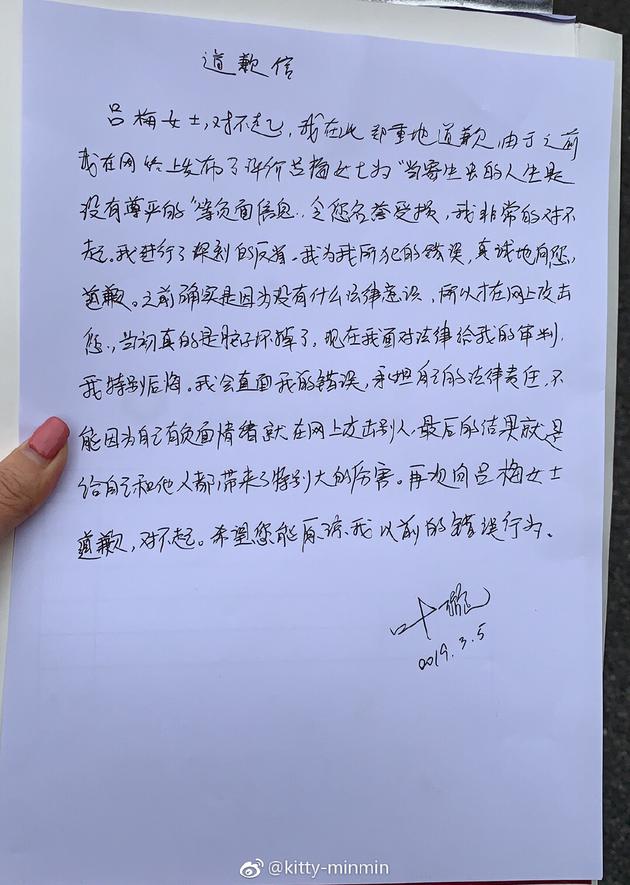 道歉信
吕梅女士,对不起,我在此郑重地道歉,由于之前
我在网络上发布了评价吕梅女士为“当寄生虫的人生是
没有尊严的”等负面信息,令您名誉受损,我非常的对不
起。我进行了深刻的反省。我为我所犯的错误,真诚地向您,
道歉。之前确实是因为没有什么法律意识,所以才在网上攻击
您,当初真的是脑子坏掉了,现在我面对法律给我的审判,
我特别后悔。我会直面我的错误,承担自己的法律责任,不
能因为自己有负面情绪就在网上攻击别人,最后的结果就是
给自己和他人都带来了特别大的伤害。再次向吕梅女士
道歉,对不起。希望您能原谅我以前的错误行为。
叶璇
2019.3.5
@kitty-minmin